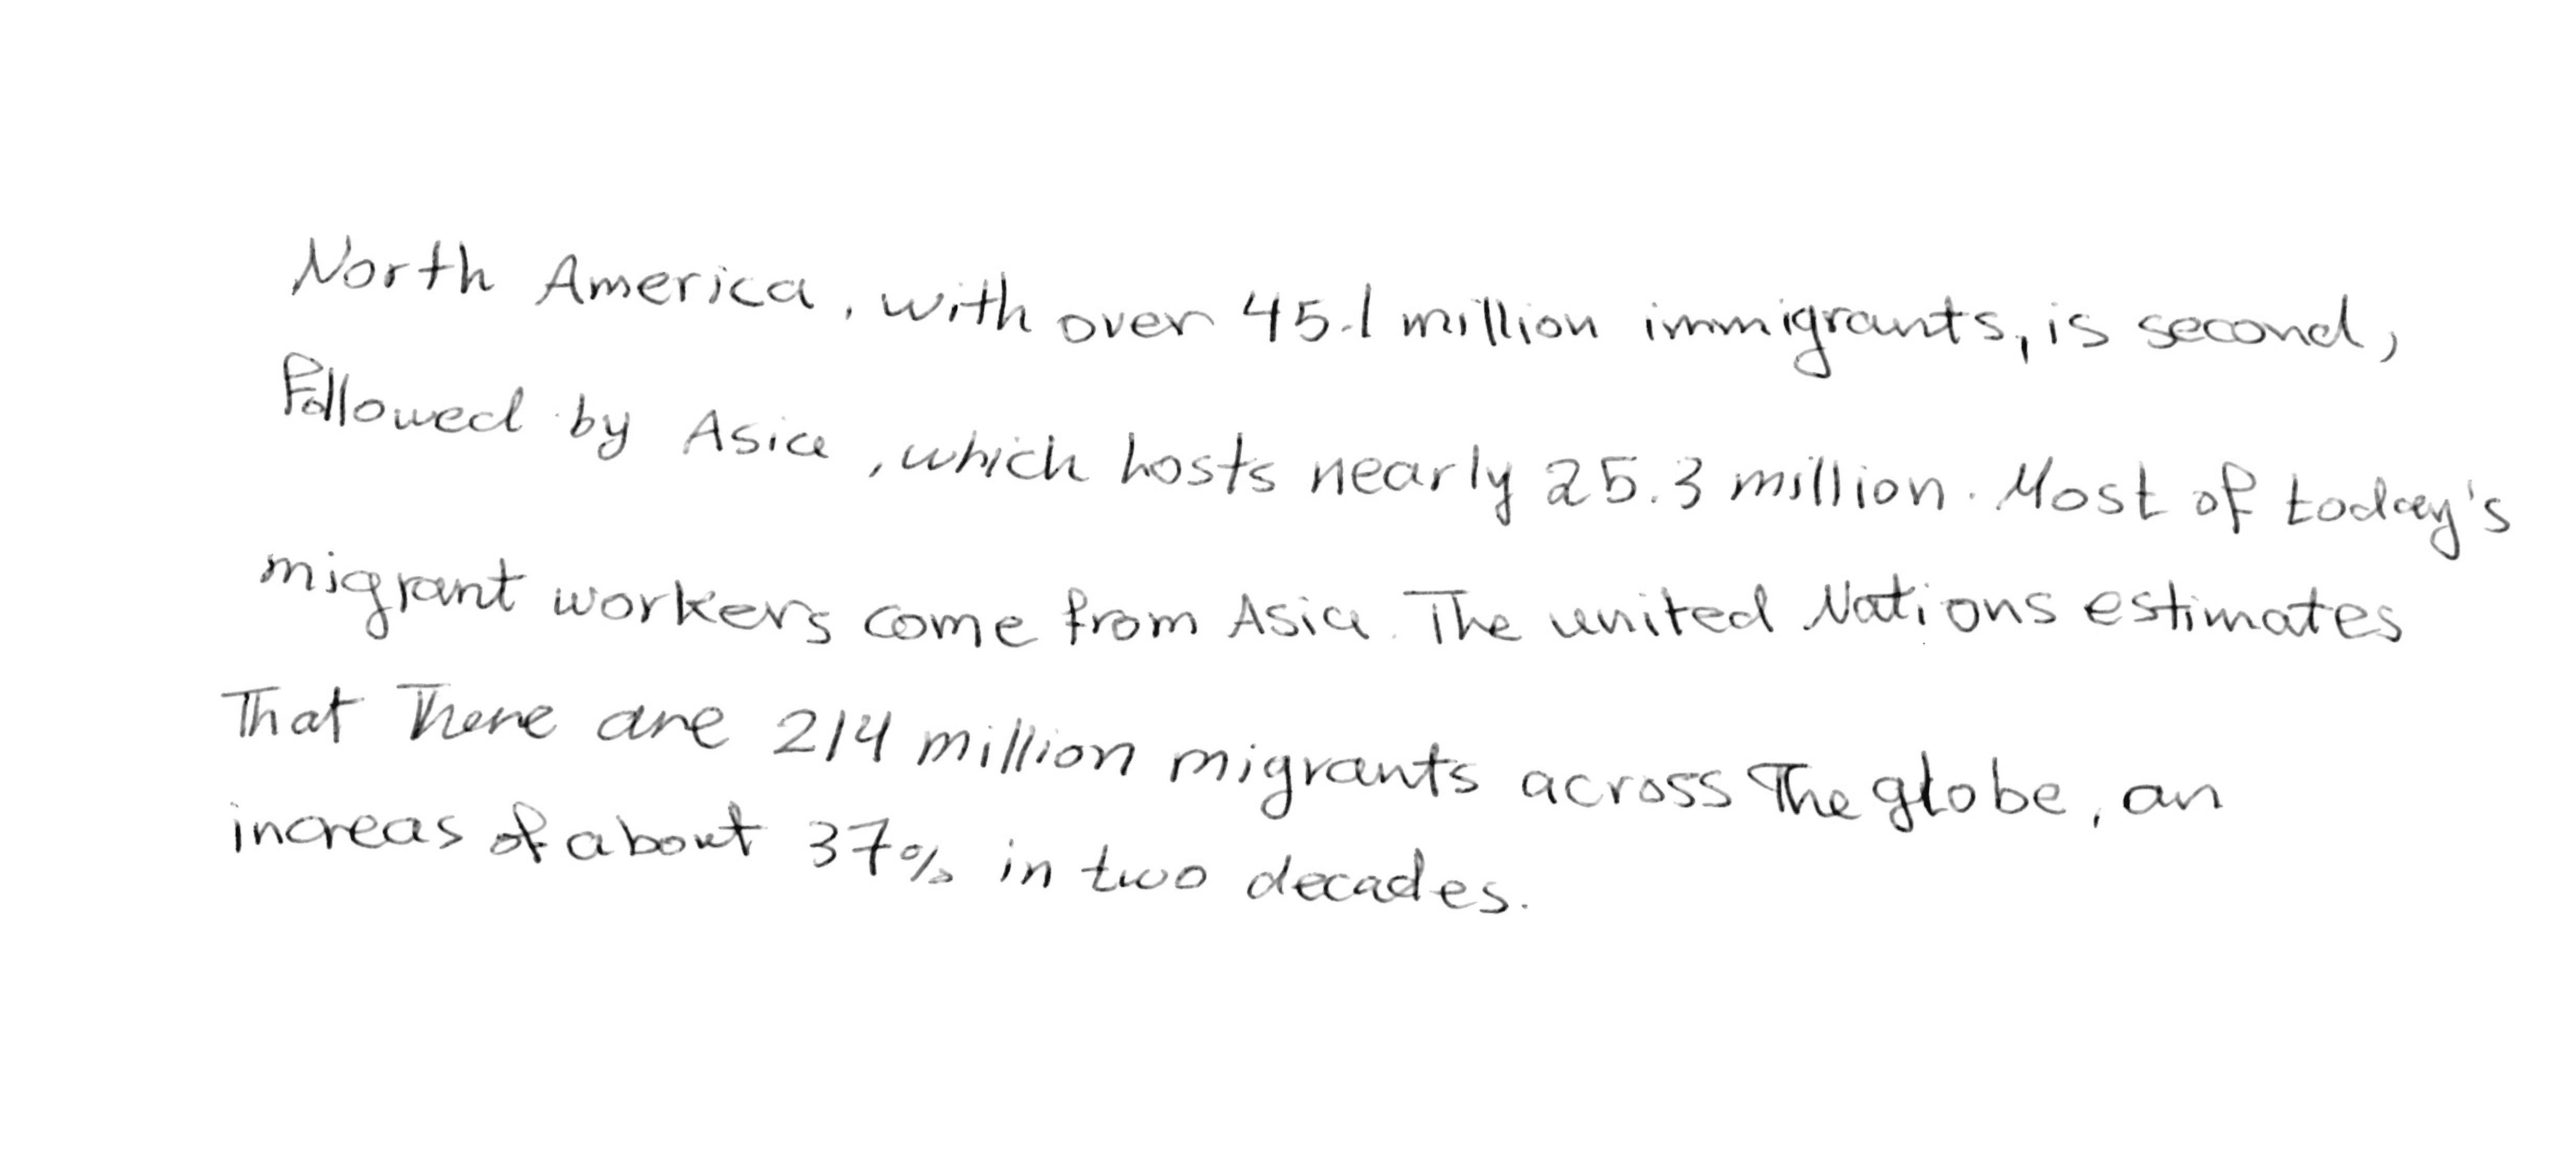 North America, with over 45.1 million immigrants, is second,
followed by Asia, which hosts nearly 25.3 million. Most of today's
migrant workers come from Asia. The united Nations estimates
That There are 214 million migrants across The globe, an
increas of about 37% in two decades.